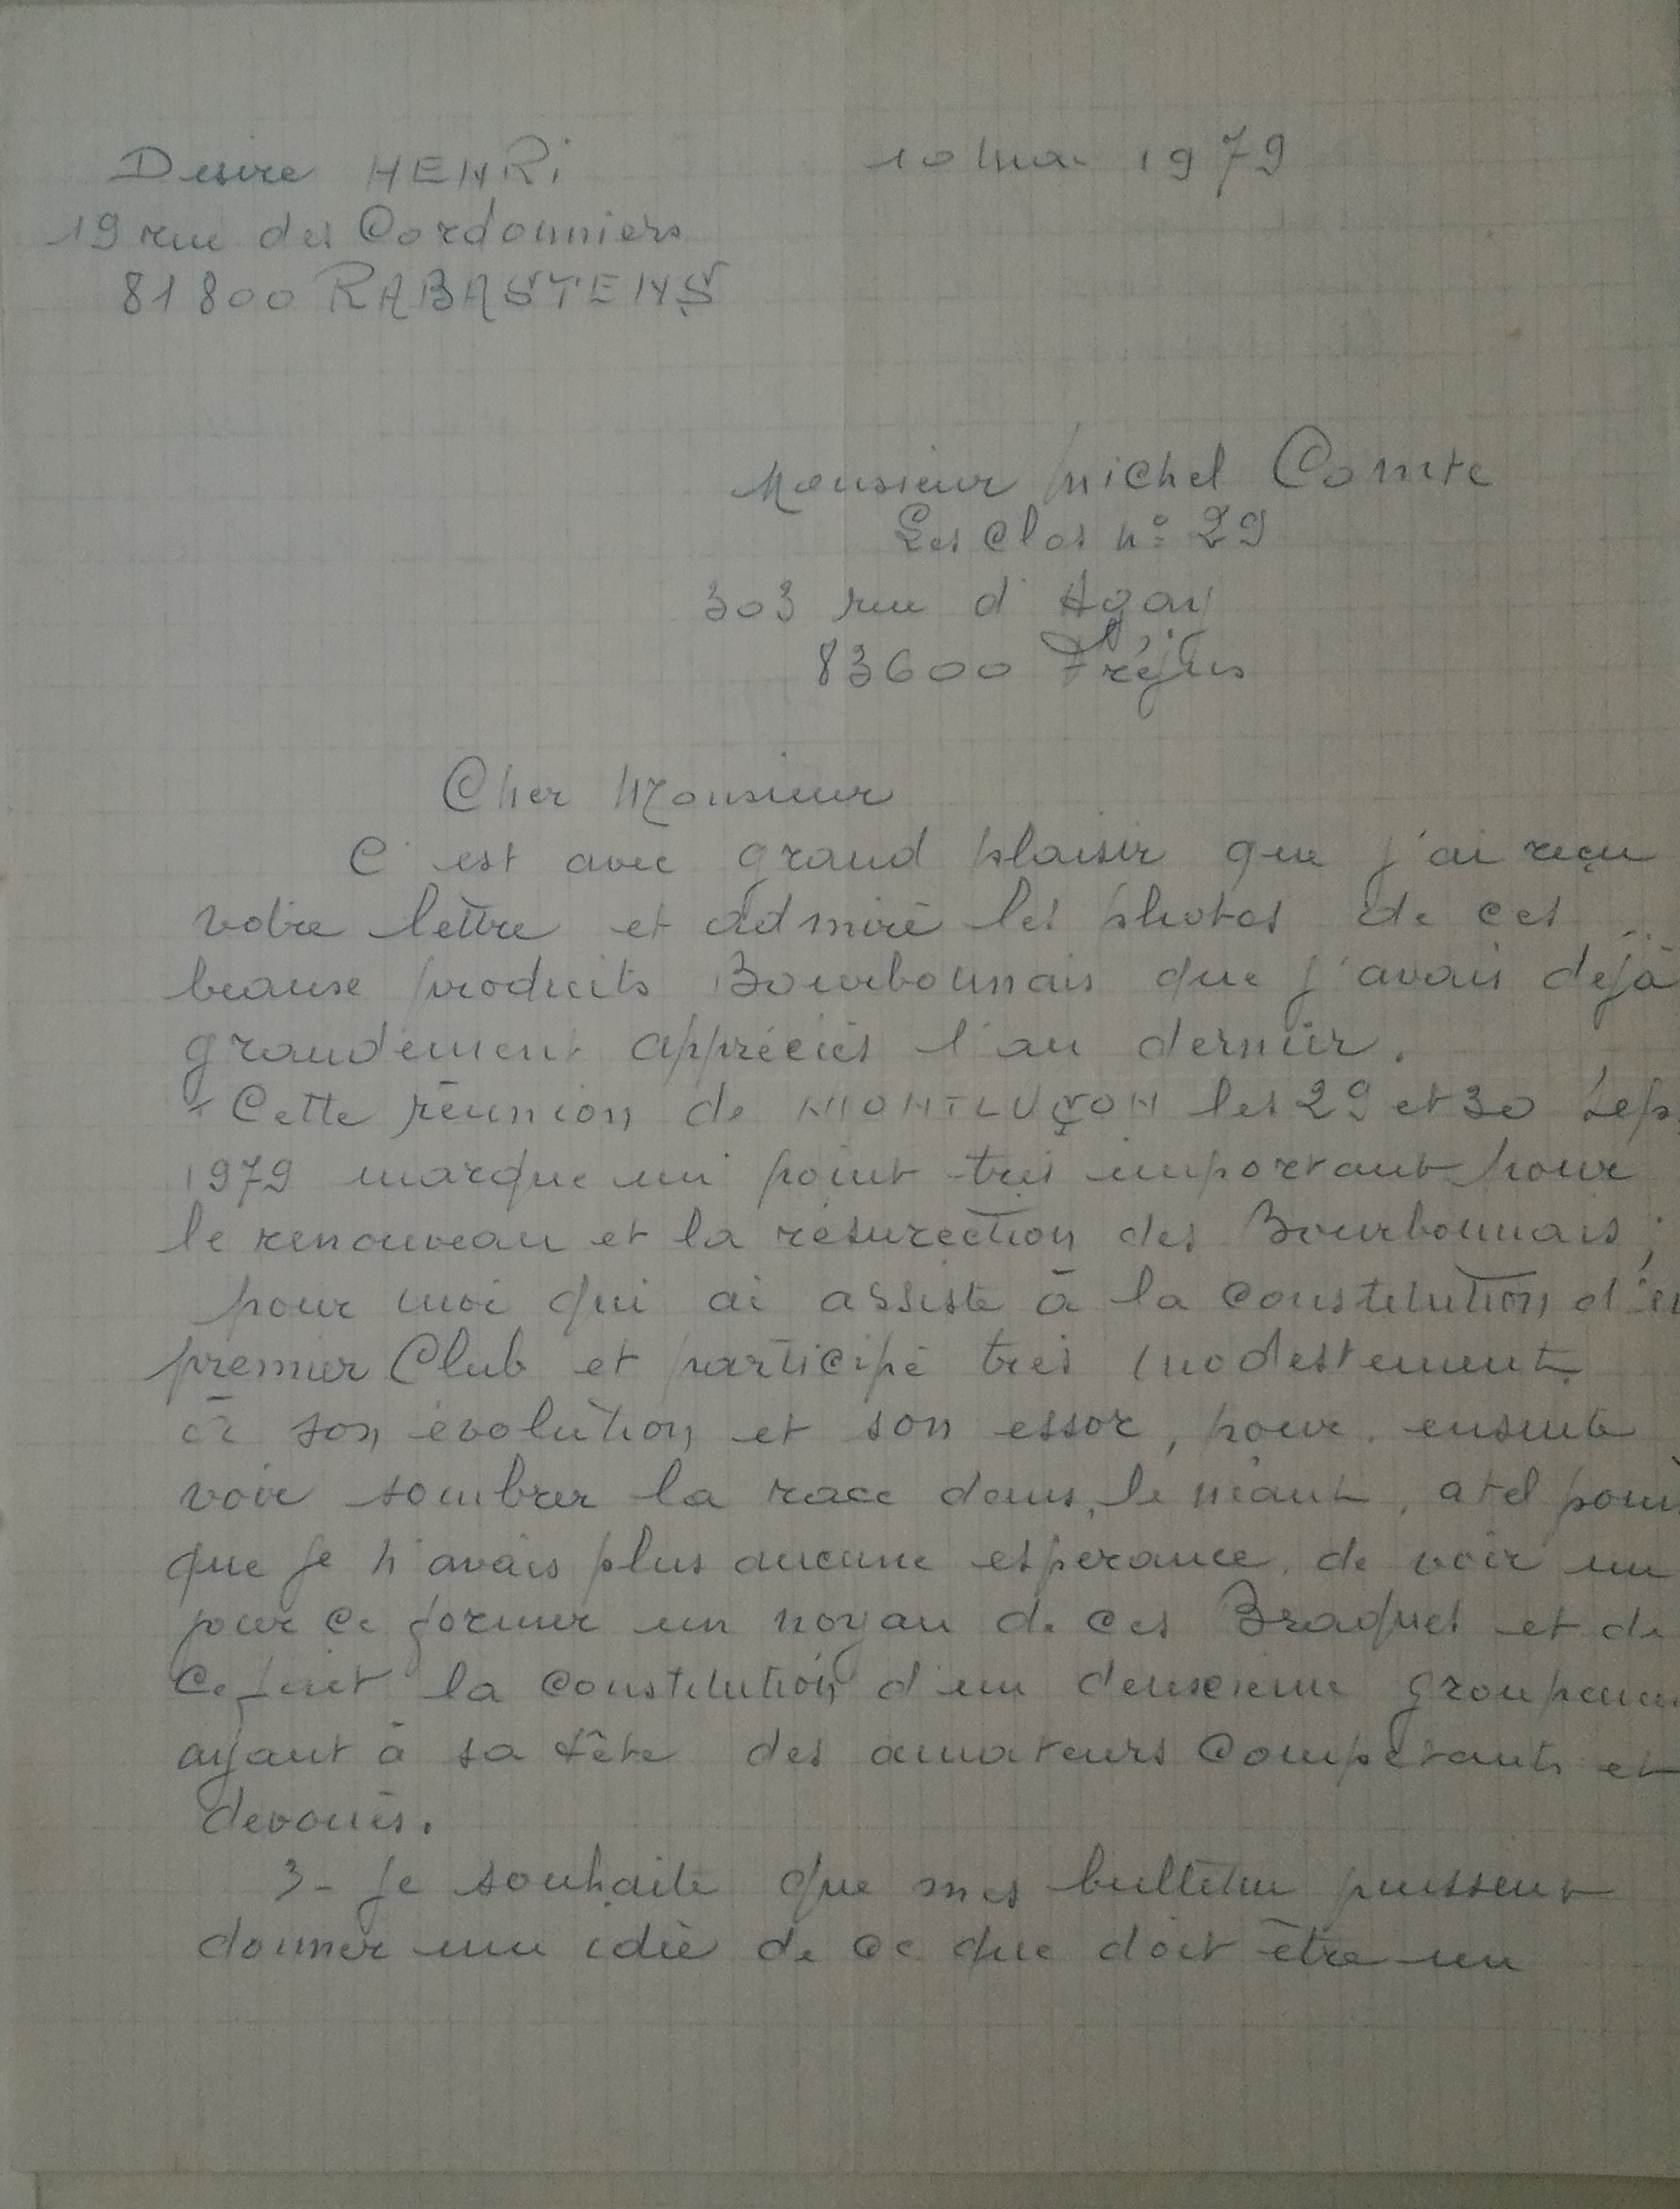 Desire HENRi
10 mai 1979
19 rue des Cordonniers
81800 RABASTENS
Monsieur Michel Comte
Les Clos n° 29
303 rue d'Agay
83600 Fréjus
Cher Monsieur
C'est avec grand plaisir que j'ai reçu
votre lettre et admiré les photos de ces
beaux produits Bourbonnais que j'avais déjà
grandement appréciés l'an dernier.
Cette réunion de MONTLUÇON les 29 et 30 Sep
1979 marque un point très important pour
le renouveau et la résurection des Bourbonnais ;
pour moi qui ai assisté à la constitution d'u
premier Club et participé très modestement
à son évolution et son essor, pour ensuite
voir sombrer la race dans le néant, a tel poin
que je n'avais plus aucune espérance de voir un
pour ce former un noyau de ces Braques et de
ce fait la constitution d'un deuxième groupem
ayant à sa tête des amateurs compétants et
dévoués.
3 - Je souhaite que mes bulletin puissent
donner une idée de ce que doit être un